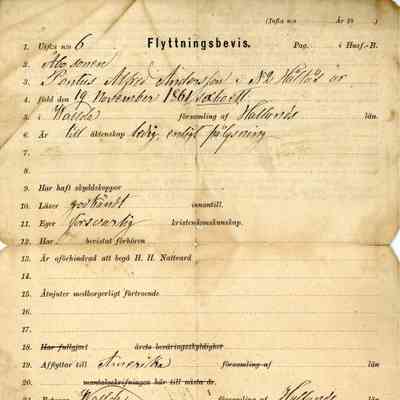 (Infts n:o År 18 )
1. Utfts n:o 6 Flyttningsbevis. Pag. i Husf.-B.
2. Åbosonen
3. Pontus Alfred Andersson i N:o 2 Hållås är
4. född den 19 November 1861
5. i Wallda församling af Hallands län.
6. Är till äktenskap ledig, enligt pålysning
7.
8.
9. Har haft skyddskoppor
10. Läser godkändt innantill.
11. Eger försvarlig kristendomskunskap.
12. Har bevistat förhören
13. Är oförhindrad att begå H. H. Nattvard
14.
15. Åtnjuter medborgerligt förtroende
16.
17.
18. Har fullgjort årets beväringsskyldighet
19. Afflyttar till Amerika församling af län
20. mantalsskrifningen här till nästa år.
21. Wallda församling af Hallands